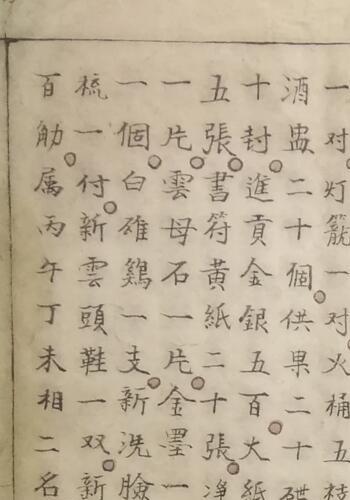 一对灯籠一对火桶五枝
酒盅二十個供果二十碟
十封進貢金銀五百大紙
五張書符黄紙二十張净
一片雲母石一片金墨一
一個白雄鷄一支新洗臉
梳一付新雲頭鞋一双新
百觔属丙午丁未相二名